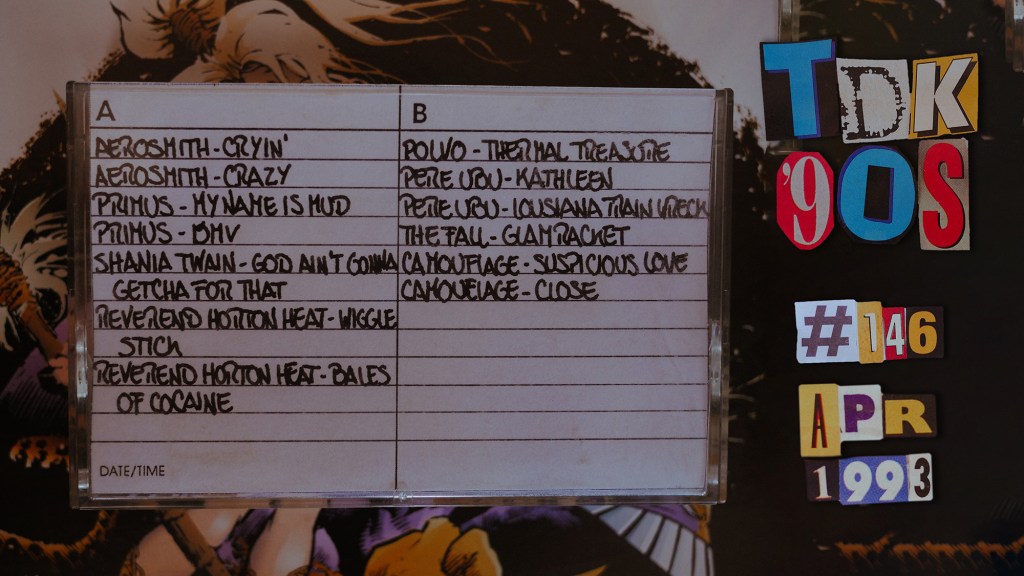 A
AEROSMITH - CRYIN'
AEROSMITH - CRAZY
PRIMUS - MY NAME IS MUD
PRIMUS - DMV
SHANIA TWAIN - GOD AIN'T GONNA
GETCHA FOR THAT
REVEREND HORTON HEAT - WIGGLE
STICK
REVEREND HORTON HEAT - BALES
OF COCAINE
DATE/TIME
B
POLVO - THERMAL TREASURE
PERE UBU - KATHLEEN
PERE UBU - LOUSIANA TRAIN WRECK
THE FALL - GLAM RACKET
CAMOUFLAGE - SUSPICIOUS LOVE
CAMOUFLAGE - CLOSE
TDK
'90S
#146
APR
1993